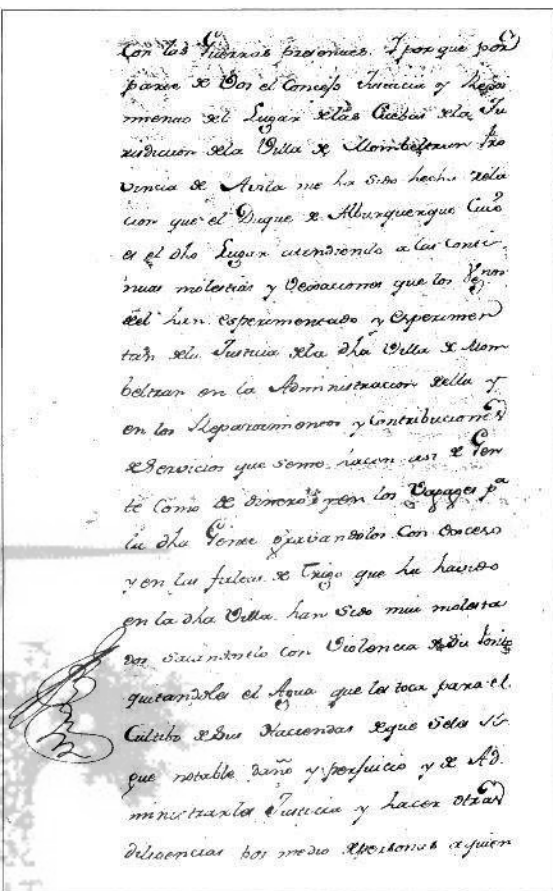 Con las Guerras presentes. Y por que por
parte de Vos el Concejo Justicia y Regi
miento del Lugar de las Cuebas de la Ju
risdicion de la Villa de Mombeltran Pro
vincia de Avila me ha sido hecha rela
cion que el Duque de Alburquerque Cuio
es el dho Lugar atendiendo a las Conti
nuas molestias y Vejaciones que los Vezinos
del han esperimentado y esperimen
tan de la Justicia de la dha Villa de Mom
beltran en la Administracion della y
en los Reparimientos y Contribuciones
de Servicios que se me hacen asi de Gen
te Como de dinero y en los Vagages pa
la dha Gente gravandolos Con exceso
y en las faltas de Trigo que ha havido
en la dha Villa han sido mui molesta
dos sacandoselo con Violencia de su
quitandoles el Agua que les toca para el
Cultibo de sus Haciendas de que se les si
gue notable daño y perjuicio y de Ad
ministrarles Justicia y hacer otras
diligencias por medio de personas a quien